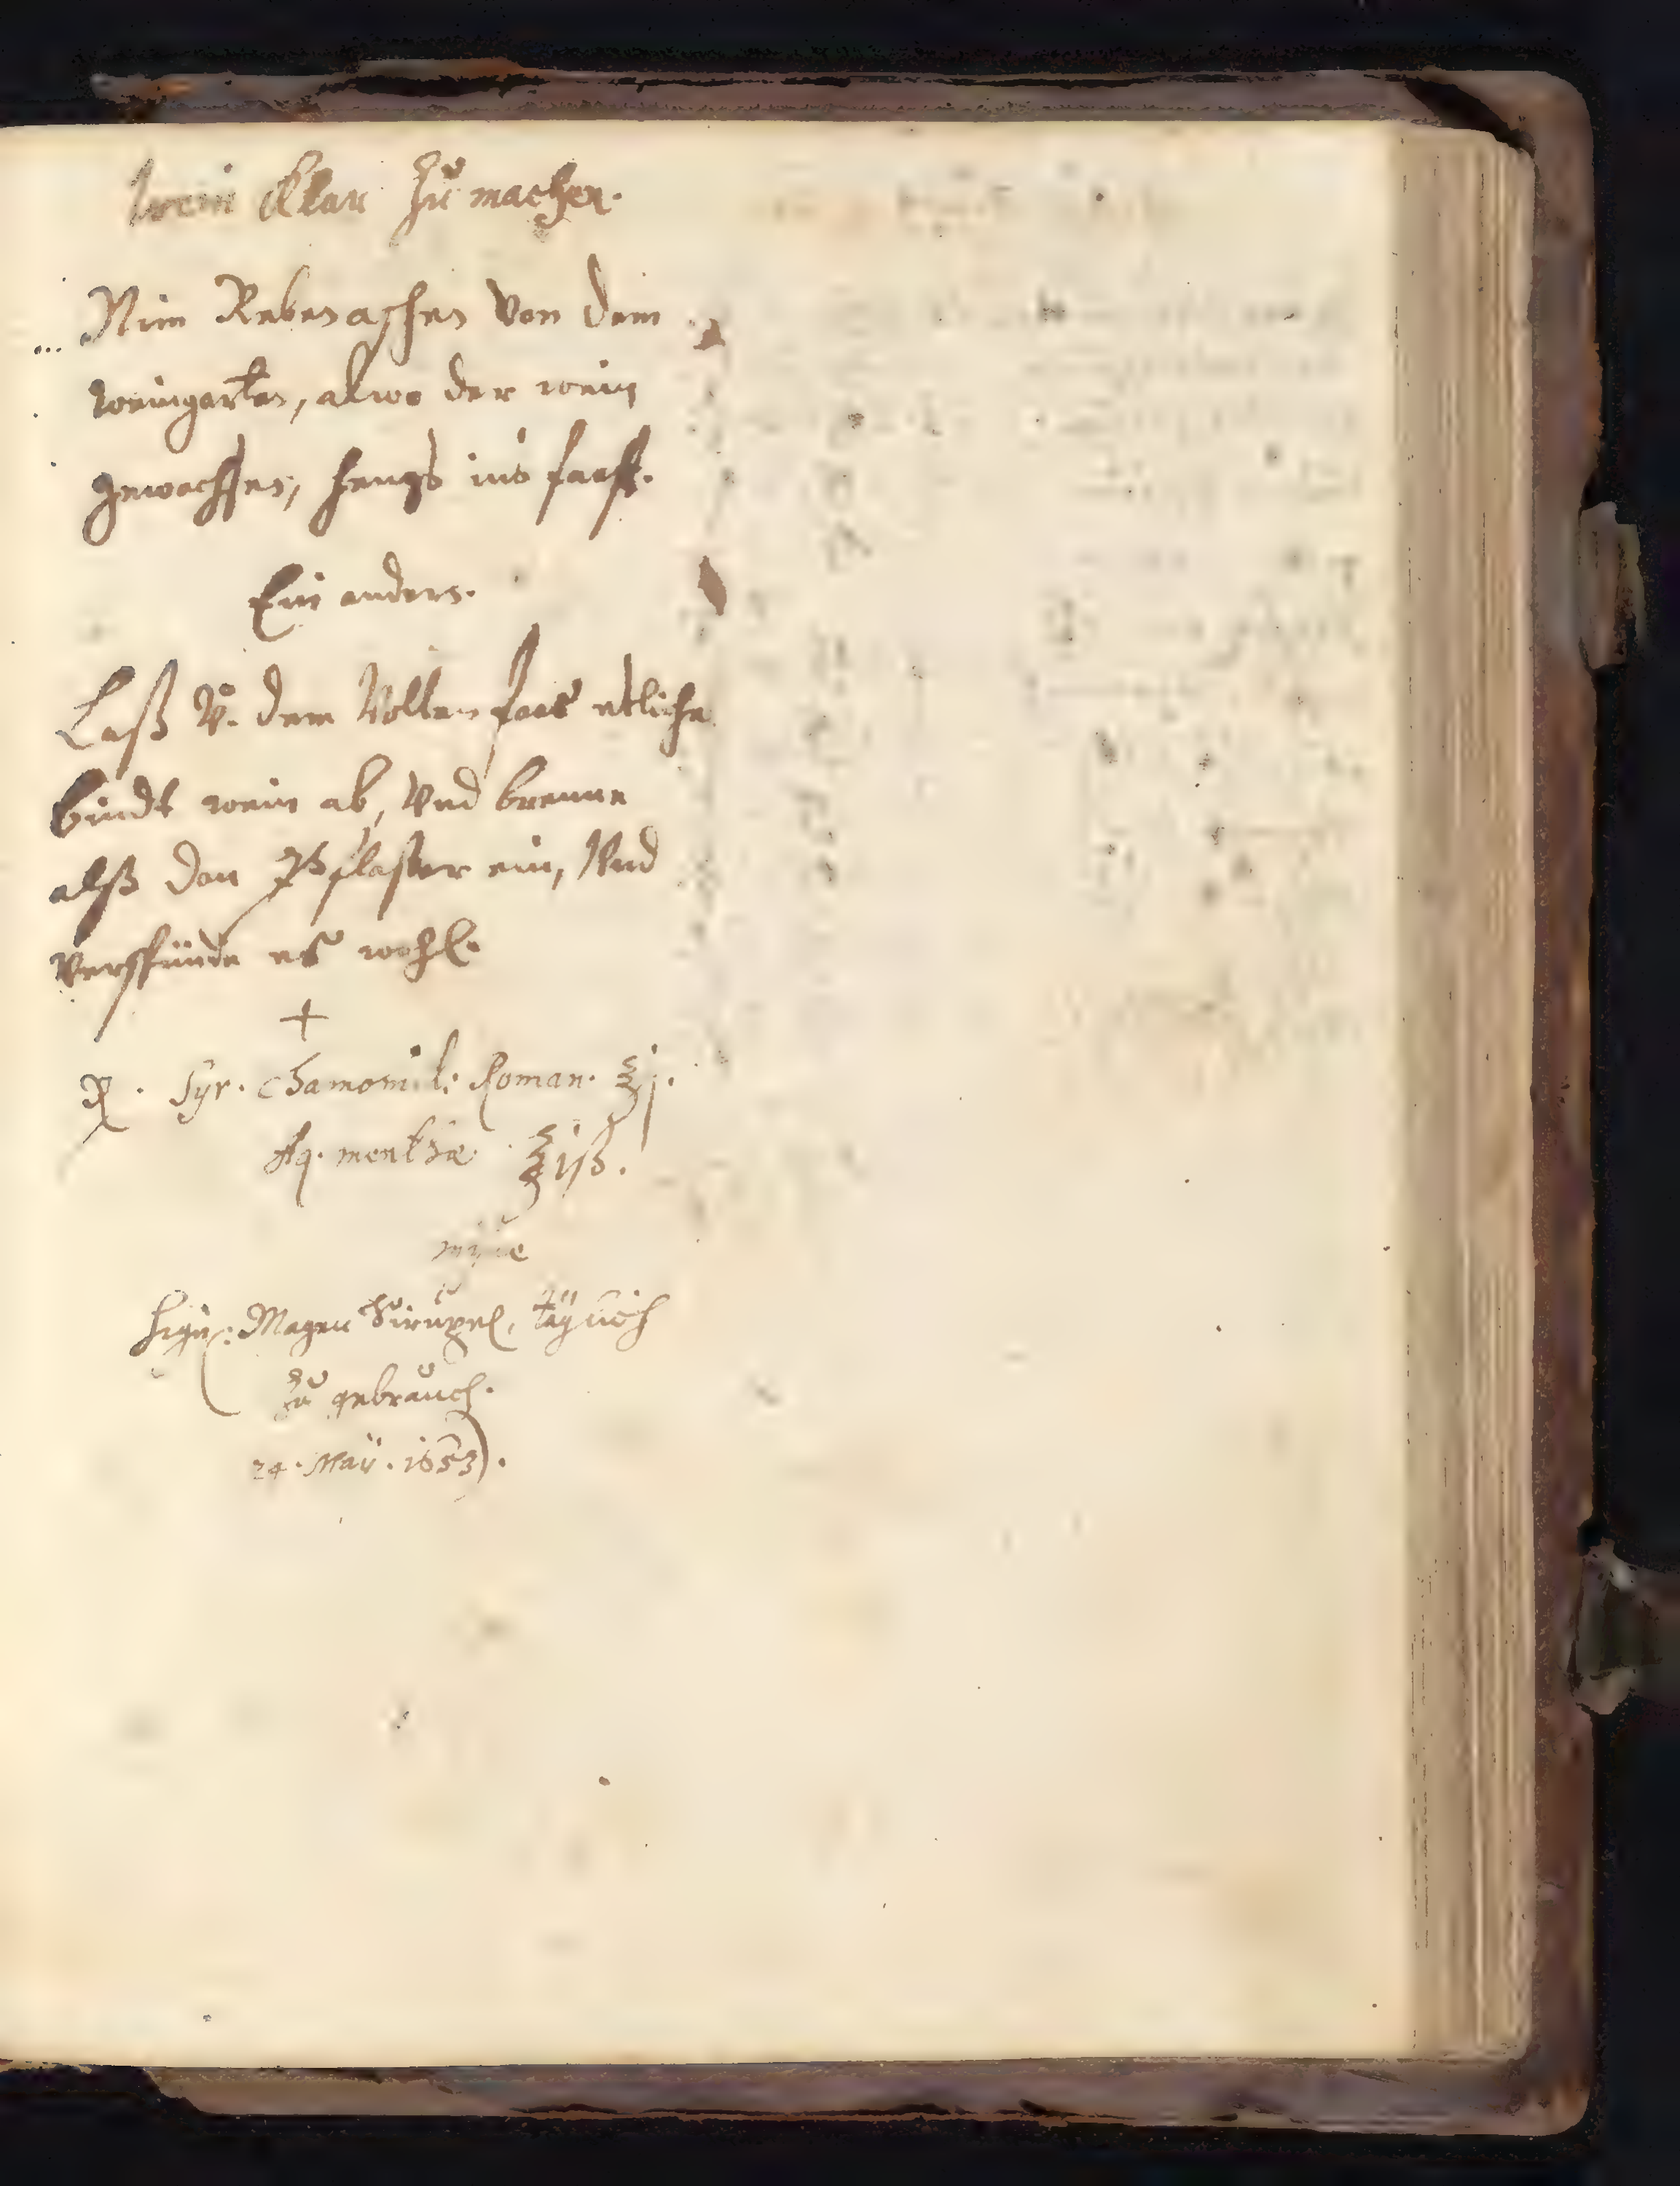 wein klar zu machen.
Nim Rebenaschen von dem
weingarten, alwo der wein
gewachsen, hengs ins faaß.
Ein anders.
Laß v. dem Vollen faas etliche
bindt wein ab, Vnd brenne
alß dan Pflaster ein, Vnd
verspünde es wohl.
+
℞. Syr. Chamomil: Roman. ℥j.
Aq. menthæ ℥ijß.
misce
Sign: Magen Sirupel, täglich
zu gebrauch.
24. Maÿ. 1653).